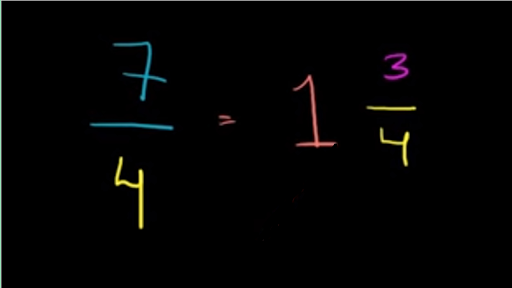 7/4 = 1 3/4